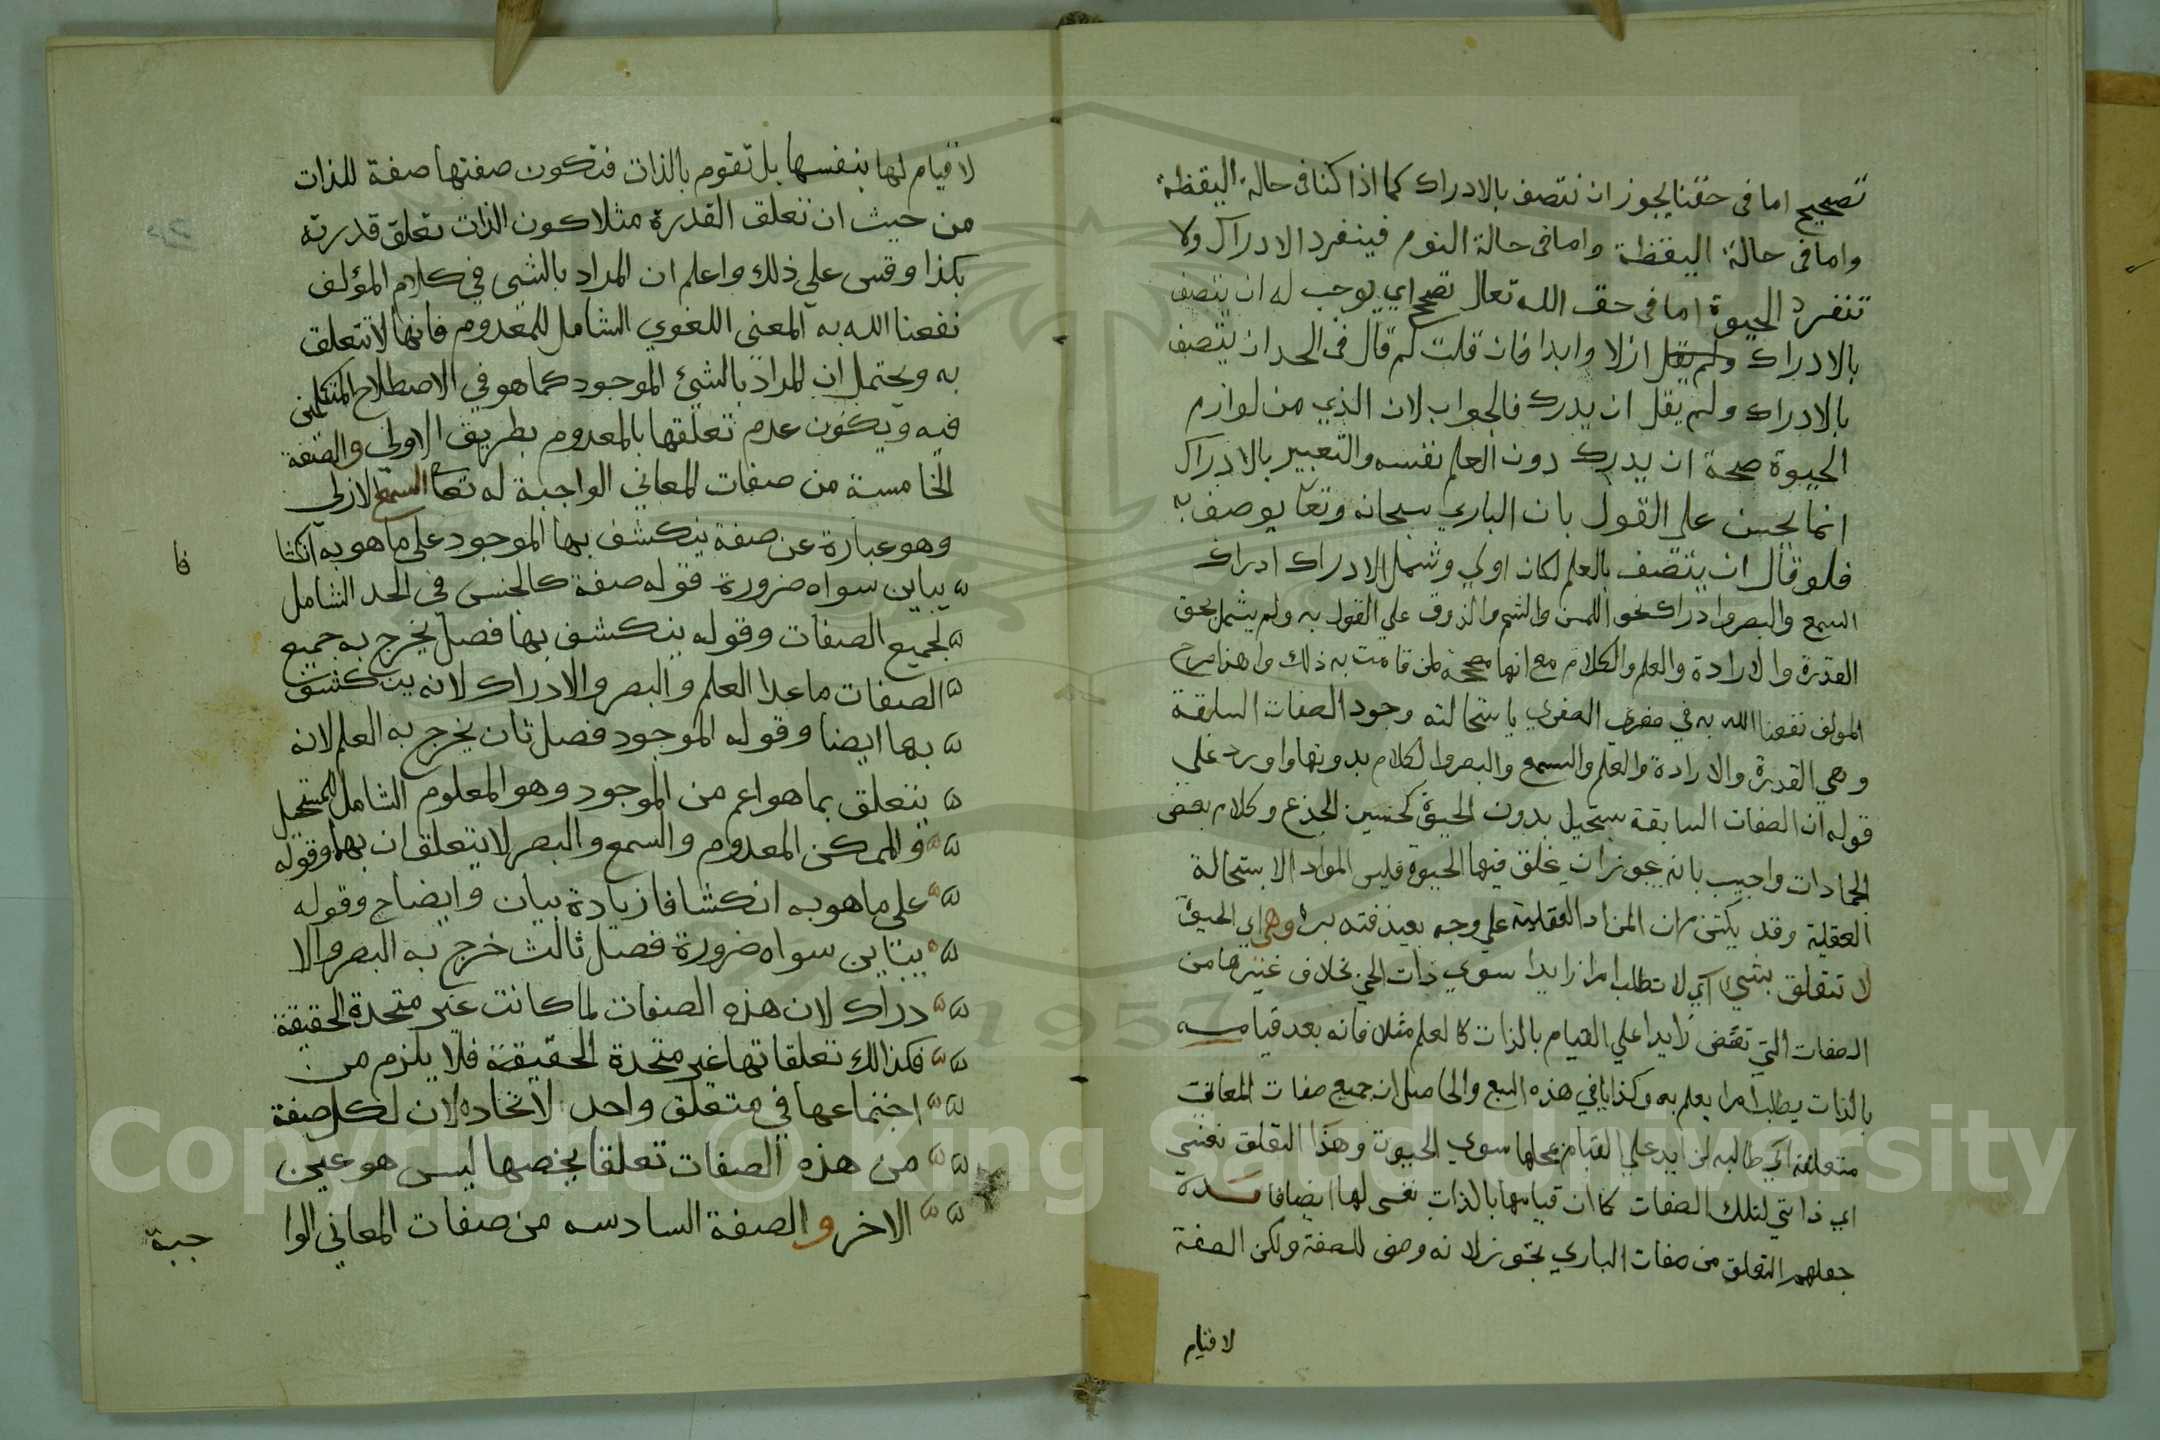 تصحيح اما في حقنا يجوز ان نتصف بالادراك كما اذا كنا في حالة اليقظة
واما في حالة اليقظة واما في حالة النوم فينفرد الادراك ولا
تنفرد الحيوة اما في حق الله تعالى تصحح اي يوجب له ان يتصف
بالادراك ولم يقل ازلا وابدا فان قلت لم قال في الحد ان يتصف
بالادراك ولم يقل ان يدرك فالجواب لان الذي من لوازم
الحيوة صحة ان يدرك دون العلم نفسه والتعبير بالادراك
انما يحسن على القول بان الباري سبحانه وتعا يوصف به
فلو قال ان يتصف بالعلم لكان اولي وشمل الادراك ادراك
السمع والبصر وادراك نحو اللمس والشم والذوق علي القول به ولم يشمل بحق
القدرة والارادة والعلم والكلام مع انها مصححة لمن قامت به ذلك ولهذا صرح
المولف نفعنا الله به في صغرى الصغري باستحالته وجود الصفات السابقة
وهي القدرة والارادة والعلم والسمع والبصر والكلام بدونها واورد علي
قوله ان الصفات السابقة يستحيل بدون الحيوة كحنين الجذع وكلام بعض
الجمادات واجيب بانه يجوز ان يخلق فيها الحيوة فليس المواد الاستحالة
العقلية وقد يكتني ان المراد العقلية علي وجه بعيد فتدبره وهي اي الحيوة
لا تتعلق بشيء اي لا تطلب امرا زايدا سوي ذات الحي بخلاف غيرها من
الصفات التي تقتضي زايدا علي القيام بالذات كالعلم مثلا فانه بعد قيامه
بالذات يطلب امرا يعلم به وكذا باقي هذه السبع والحاصل ان جميع صفات المعاني
متعلقة اي طالبة لزايد علي القيام بمحلها سوي الحيوة وهذا التعلق نفسي
اي ذاتي لتلك الصفات كما ان قيامها بالذات نفسي لها ايضا فائدة
جعلهم التعلق من صفات الباري تجوز لانه وصف للصفة ولكن الصفة
لا قيام
لا قيام لها بنفسها بل تقوم بالذات فتكون صفتها صفة للذات
من حيث ان تعلق القدرة مثلا كون الذات تعلق قدرته
بكذا وقس علي ذلك واعلم ان المراد بالشي في كلام المؤلف
نفعنا الله به المعنى اللغوي الشامل للمعدوم فانها لا تتعلق
به ويحتمل ان المراد بالشيئ الموجود كما هو في الاصطلاح المتكلمين
فيه ويكون عدم تعلقها بالمعدوم بطريق الاولى والصفة
الخامسة من صفات المعاني الواجبة له تعا السمع الازلي
وهو عبارة عن صفة ينكشف بها الموجود على ما هو به انكشا
فا
يباين سواه ضرورة قوله صفة كالجنس في الحد الشامل
لجميع الصفات وقوله ينكشف بها فصل يخرج به جميع
الصفات ما عدا العلم والبصر والادراك لانه ينكشف
بها ايضا وقوله الموجود فصل ثان يخرج به العلم لانه
يتعلق بما هو اعم من الموجود وهو المعلوم الشامل للمستحيل
والممكن المعدوم والسمع والبصر لا يتعلقان بهما وقوله
على ما هو به انكشافا زيادة بيان وايضاح وقوله
يباين سواه ضرورة فصل ثالث خرج به البصر والا
دراك لان هذه الصفات لما كانت غير متحدة الحقيقة
فكذالك تعلقاتها غير متحدة الحقيقة فلا يلزم من
اجتماعها في متعلق واحد الاتحاد لان لكل صفة
من هذه الصفات تعلقا يخصها ليس هو عين
الاخر و الصفة السادسه من صفات المعاني الوا
جبة
Copyright © King Saud University
1957